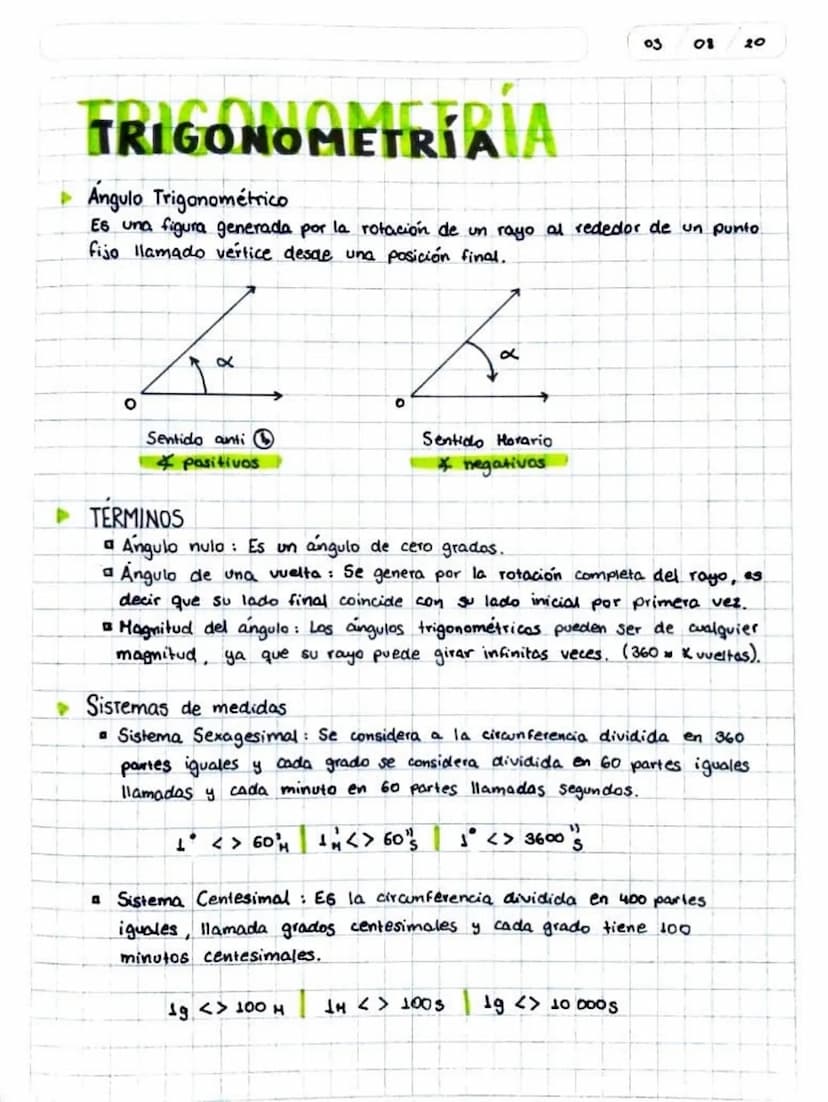 03 08 20
TRIGONOMETRÍA
▶ Ángulo Trigonométrico
Es una figura generada por la rotación de un rayo al rededor de un punto
fijo llamado vértice desde una posición final.
α
O
α
O
Sentido anti
Sentido Horario
∡ positivos
∡ negativos
▶ TÉRMINOS
Ángulo nulo : Es un ángulo de cero grados.
Ángulo de una vuelta : Se genera por la rotación completa del rayo, es
decir que su lado final coincide con su lado inicial por primera vez.
Magnitud del ángulo : Los ángulos trigonométricos pueden ser de cualquier
magnitud, ya que su rayo puede girar infinitas veces. (360 x vueltas).
▶ Sistemas de medidas
Sistema Sexagesimal : Se considera a la circunferencia dividida en 360
partes iguales y cada grado se considera dividida en 60 partes iguales
llamadas y cada minuto en 60 partes llamadas segundos.
1° <> 60'M | 1'M <> 60''S | 1° <> 3600''S
Sistema Centesimal : Es la circunferencia dividida en 400 partes
iguales, llamada grados centesimales y cada grado tiene 100
minutos centesimales.
1g <> 100 M | 1M <> 100S | 1g <> 10 000S